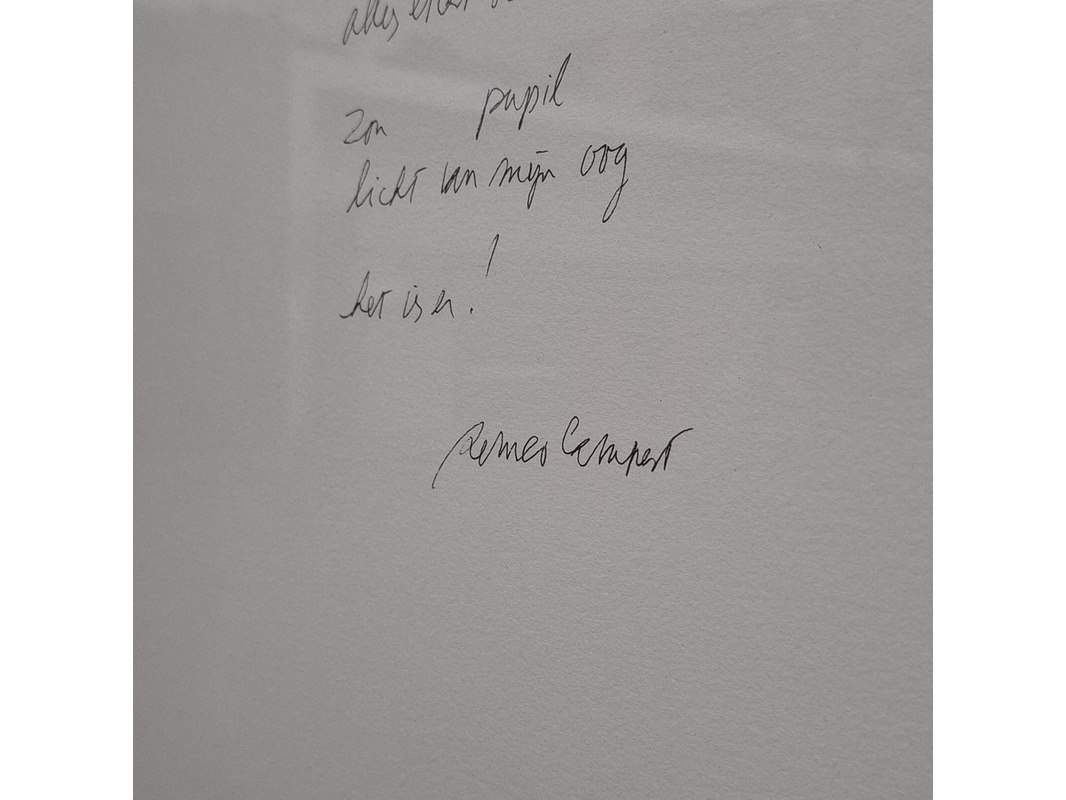 alles
zon pupil
licht van mijn oog
het is er!
Remco Campert